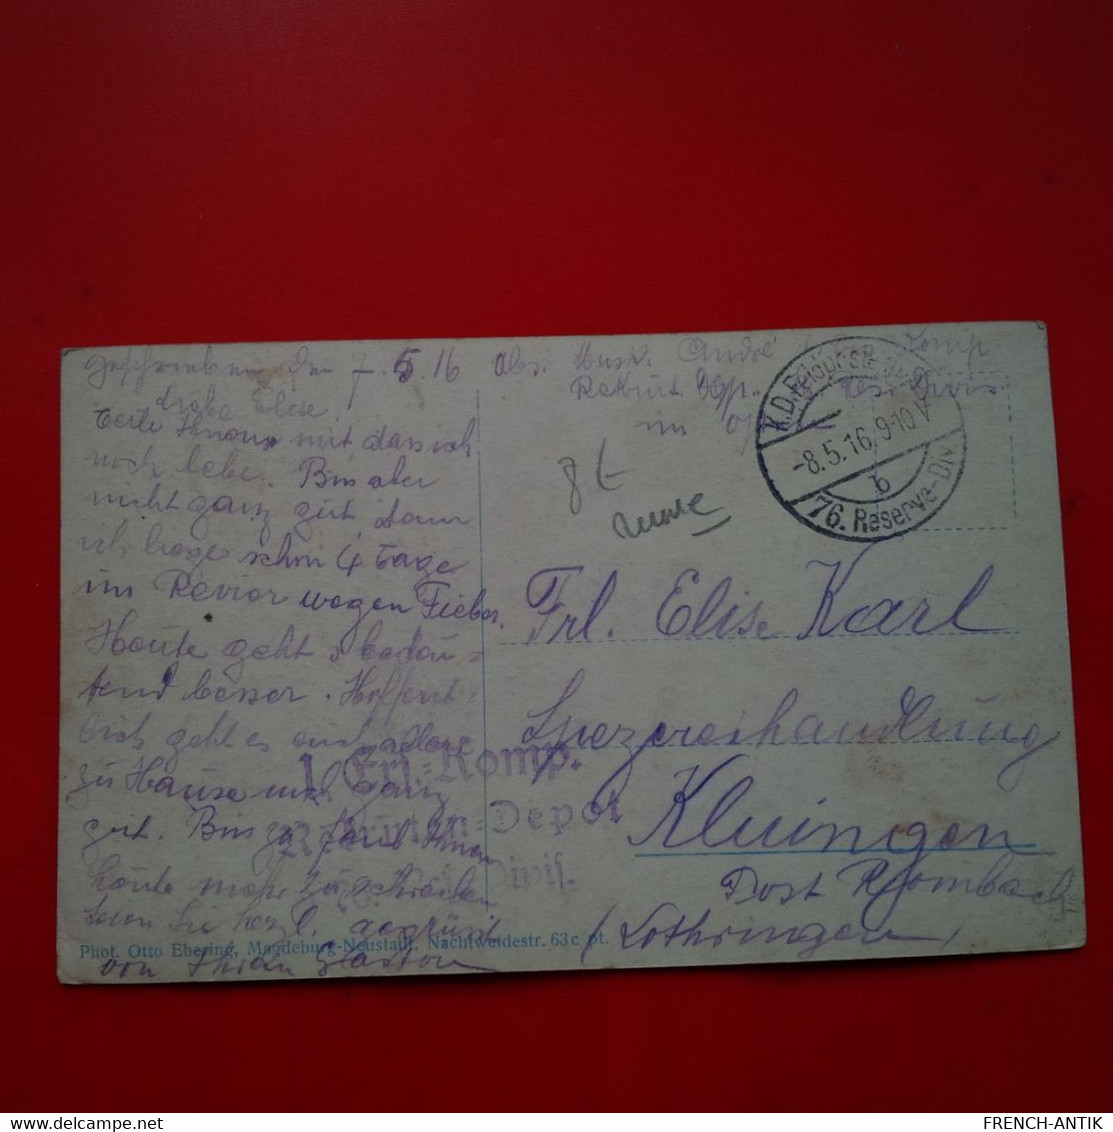 geschrieben den 7.5.16
Abs. Musk. André Komp
Rekrut Dep. 76. Res. Divis
im
Liebe Elise
Teile Ihnen mit, dass ich
noch lebe. Bin aber
nicht ganz gut dann
ich liege schon 4 Tage
im Revier wegen Fieber.
Heute geht s bedeu=
tend besser. Hoffent=
lich geht es euch alle
zu Hause noch ganz
gut. Bin zu faul Ihnen
heute mehr zu schreiben
Seien Sie herzl. gegrüsst
von Ihren Gaston
8 t
K.D. Feldpost
-8.5.16. 9-10 V
b
76. Reserve-Div
Frl. Elise Karl
Spezereihandlung
Kluingen
Post Rombach
(Lothringen)
1. Ers.-Komp.
Rekruten-Depot
Divis.
Phot. Otto Ebering, Magdeburg-Neustadt, Nachtweidestr. 63c pt.
FRENCH-ANTIK
delcampe.net